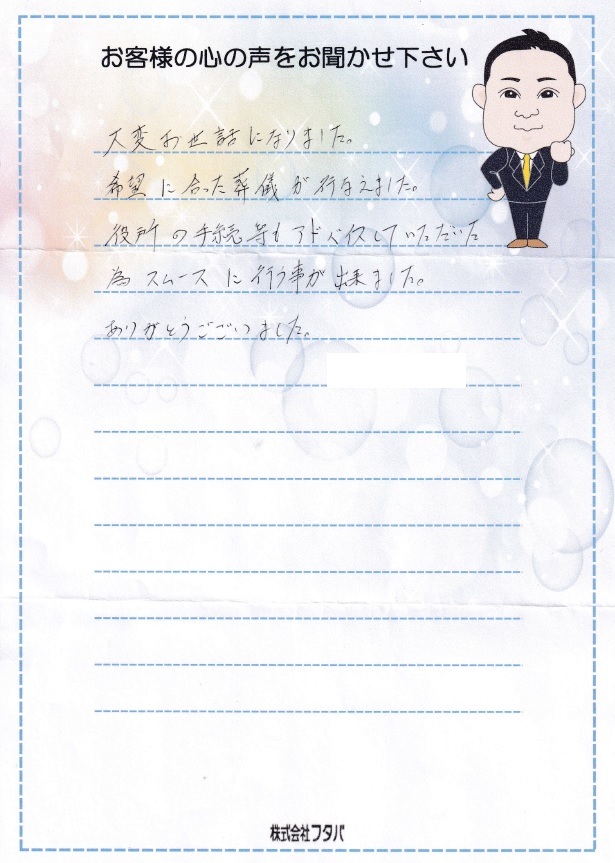 お客様の心の声をお聞かせ下さい
大変お世話になりました。
希望に合った葬儀が行なえました。
役所の手続等もアドバイスしていただいた
為スムースに行う事が出来ました。
ありがとうございました。
株式会社フタバ